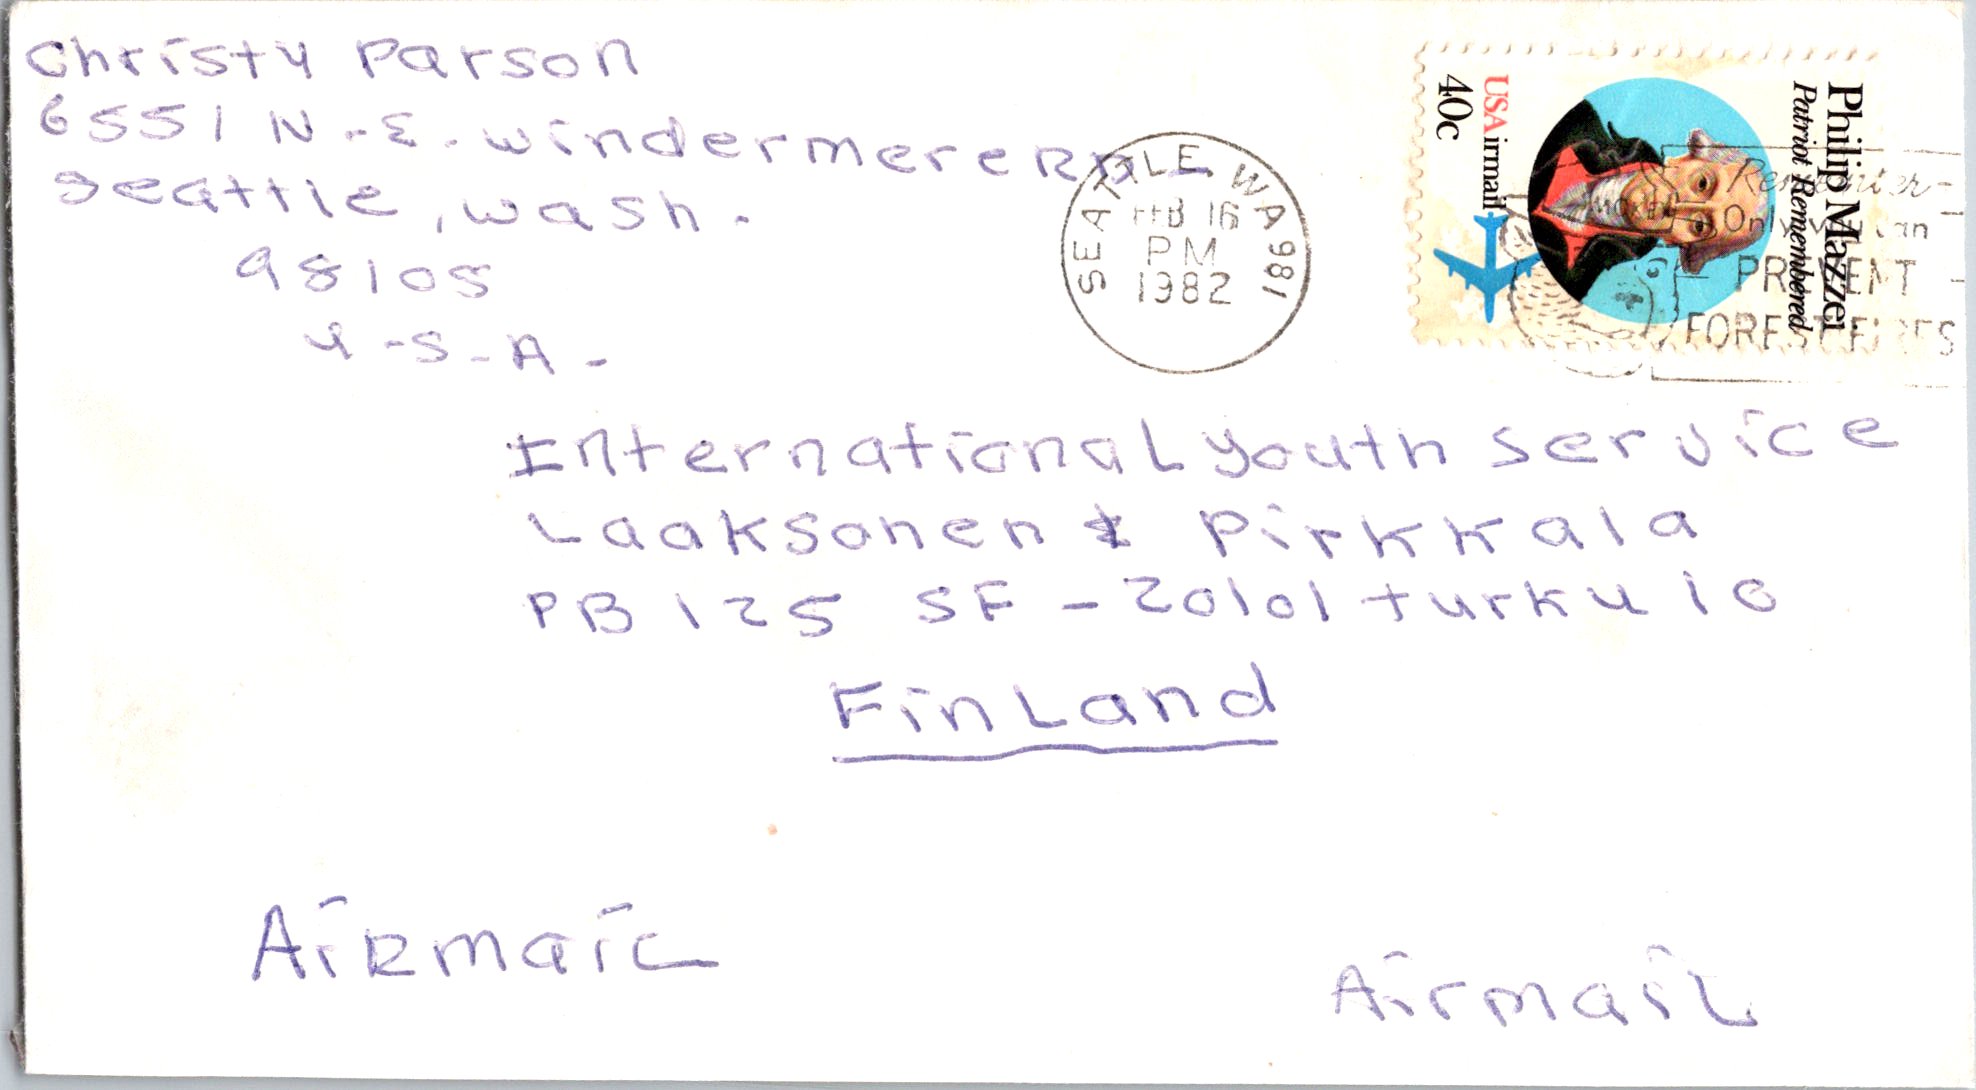 Christy Parson
6551 N.E. Windermere RD
Seattle, Wash.
98105
U-S-A-
SEATTLE, WA 981
FEB 16
PM
1982
Philip Mazzei
Patriot Remembered
USAirmail
40c
Only can
PREVENT
FOREST FIRES
International Youth Service
Laaksonen & Pirkkala
PB 125 SF-20101 Turku 10
FinLand
AiRmaiL
AirmaiL